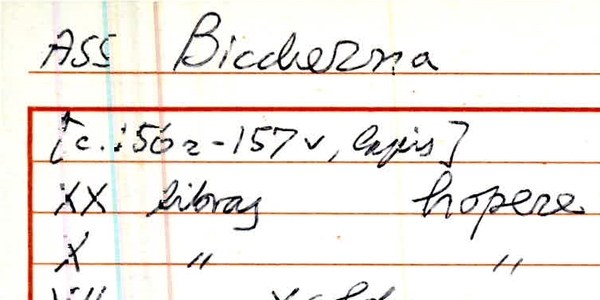 ASS Biccherna
[c. 156r - 157v, lapis]
XX libras hopere
X " "